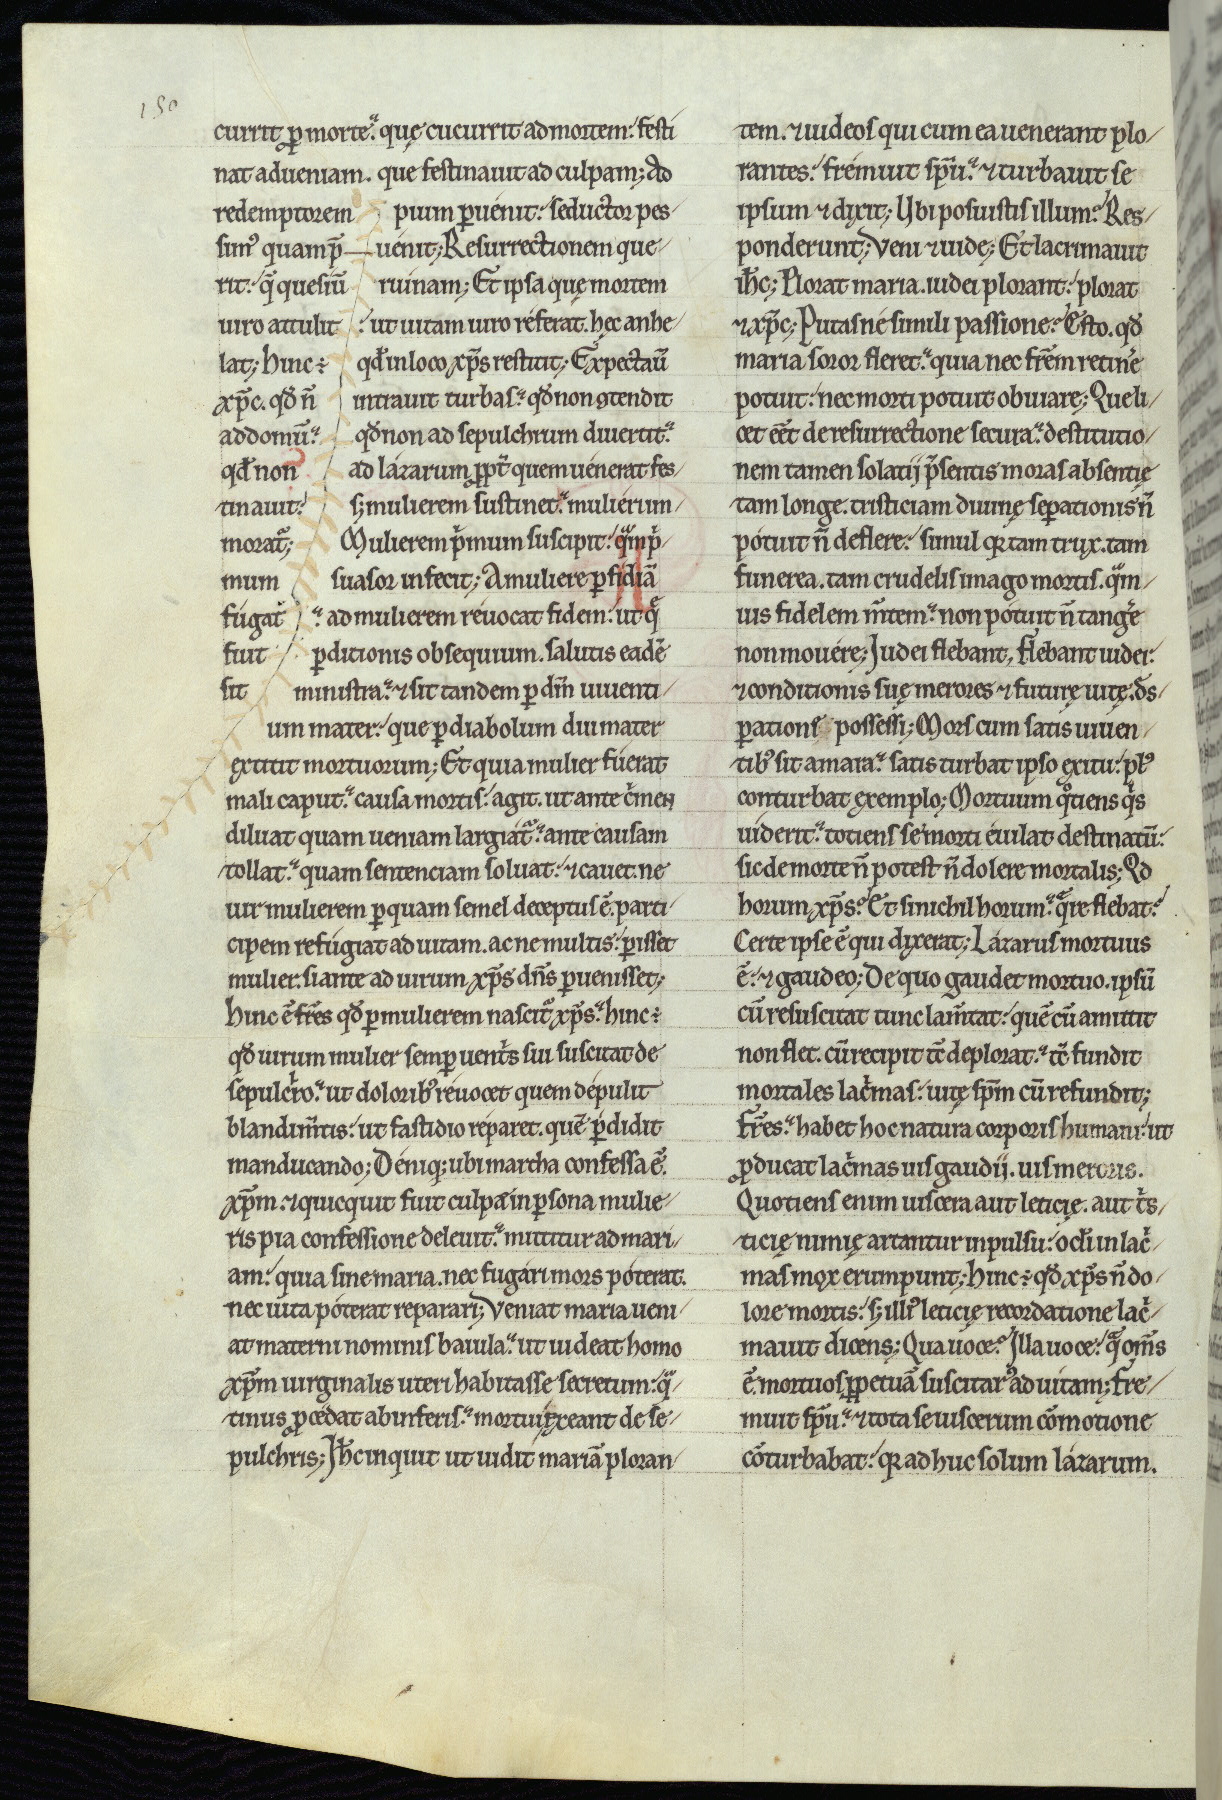 150
currit ꝑ morte᷑. quę cucurrit ad mortem: festi
nat adueniam. que festinauit ad culpam; Ad
redemptorem pium ꝑuenit: seductor pes-
sim᷒ quam p̄uenit; Resurrectionem que-
rit: q̄ quesiū ruinam; Et ipsa quę mortem
uiro attulit: ut uitam uiro referat. hęc anhe-
lat; hinc ÷ qđ in loco xp̄s restitit; Expectauı̄
xp̄c. qđ n̄ intrauit turbas: qđ non ꝯtendit
ad domū: qđ non ad sepulchrum diuertit:
qđ non ad lazarum ꝓpt̄ quem uenerat fes-
tinauit: sꝫ mulierem sustinet: mulierum
morat᷑; Mulierem p̄mum suscipit: q̄m p̄-
mum suasor infecit; A muliere ꝑfidiā
fugat: ad mulierem reuocat fidem: ut q̄
fuit ꝑditionis obsequium. salutis eadē
sit ministra: ⁊ sit tandem ꝑ dn̄m uiuenti-
um mater: que ꝑ diabolum diu mater
extitit mortuorum; Et quia mulier fuerat
mali caput: causa mortis: agit. ut ante c̄men
diluat quam ueniam largiat᷑: ante causam
tollat: quam sentenciam soluat: ⁊ cauet. ne
uir mulierem ꝑ quam semel deceptus ē. parti-
cipem refugiat ad uitam. ac ne multis: ꝑisset
mulier. si ante ad uirum xp̄s dn̄s ꝑuenisset;
Hinc ē fr̄es qđ ꝑ mulierem nascit᷑ xp̄s: hinc ÷
qđ uirum mulier semꝑ uent̄s sui suscitat de
sepulcro: ut dolorib᷒ reuocet quem depulit
blandim̄tis: ut fastidio reparet. quē ꝑdidit
manducando; Deniqꝫ ubi martha confessa ē.
xp̄m. ⁊ quicquit fuit culpæ in ꝑsona mulie-
ris pia confessione deleuit: mittitur ad mari-
am: quia sine maria. nec fugari mors poterat.
nec uita poterat reparari; Veniat maria ueni-
at materni nominis baiula: ut uideat homo
xp̄m uirginalis uteri habitasse secretum: q̄-
tinus ꝓcedat ab inferis: mortui exeant de se-
pulchris; Jh̄c inquit ut uidit mariā ploran-
tem. ⁊ iudeos qui cum ea uenerant plo-
rantes: fremuit sp̄u: ⁊ turbauit se
ipsum ⁊ dixit; Vbi posuistis illum? Res-
ponderunt; Veni ⁊ uide; Et lacrimauit
ih̄c; Plorat maria. iudei plorant: plorat
⁊ xp̄c; Putasne simili passione? Esto. qđ
maria soror fleret: quia nec fr̄em retin̄e
potuit: nec morti potuit obuiare; Que li-
cet eēt de resurrectione secura: destitutio-
nem tamen solatij p̄sentis moras absentię
tam longe. tristiciam diuinę seꝑationis n̄
potuit n̄ deflere: simul qꝫ tam trux. tam
funerea. tam crudelis imago mortis. q̄m-
uis fidelem m̄tem: non potuit n̄ tanḡe
non mouere; Judei flebant, flebant iudei:
⁊ conditionis suę merores ⁊ futurę uitę. ds-
ꝑations possessi; Mors cum satis uiuen-
tib᷒ sit amara: satis turbat ipso exitu: pl᷒
conturbat exemplo; Mortuum quotiens q̄s
uiderit: totiens se morti eiulat destinatū:
sic de morte n̄ potest n̄ dolere mortalis; Qd
horum xp̄s? Et si nichil horum: q̄re flebat?
Certe ipse ē qui dixerat; Lazarus mortuus
ē: ⁊ gaudeo; De quo gaudet mortuo. ipsū
cū resuscitat tunc lam̄tat: quē cū amittit
non flet. cū recipit tc̄ deplorat: tc̄ fundit
mortales lac̄mas: uitę sp̄m cū refundit;
Fr̄es: habet hoc natura corporis humani: ut
ꝓducat lac̄mas uis gaudij. uis meroris.
Quotiens enim uiscera aut leticię. aut t̄s-
ticię nimię artantur inpulsu: oc̄li in lac̄-
mas mox erumpunt; Hinc ÷ qđ xp̄s n̄ do-
lore mortis: sꝫ illi᷒ leticię recordatione lac̄-
mauit dicens; Qua uoce? Illa uoce: q̄ om̄s
ē mortuos ꝑpetuā suscitatur᷒ ad uitam; Fre-
muit sp̄u: ⁊ tota se uiscerum cōmotione
cōturbabat: qꝫ adhuc solum lazarum.